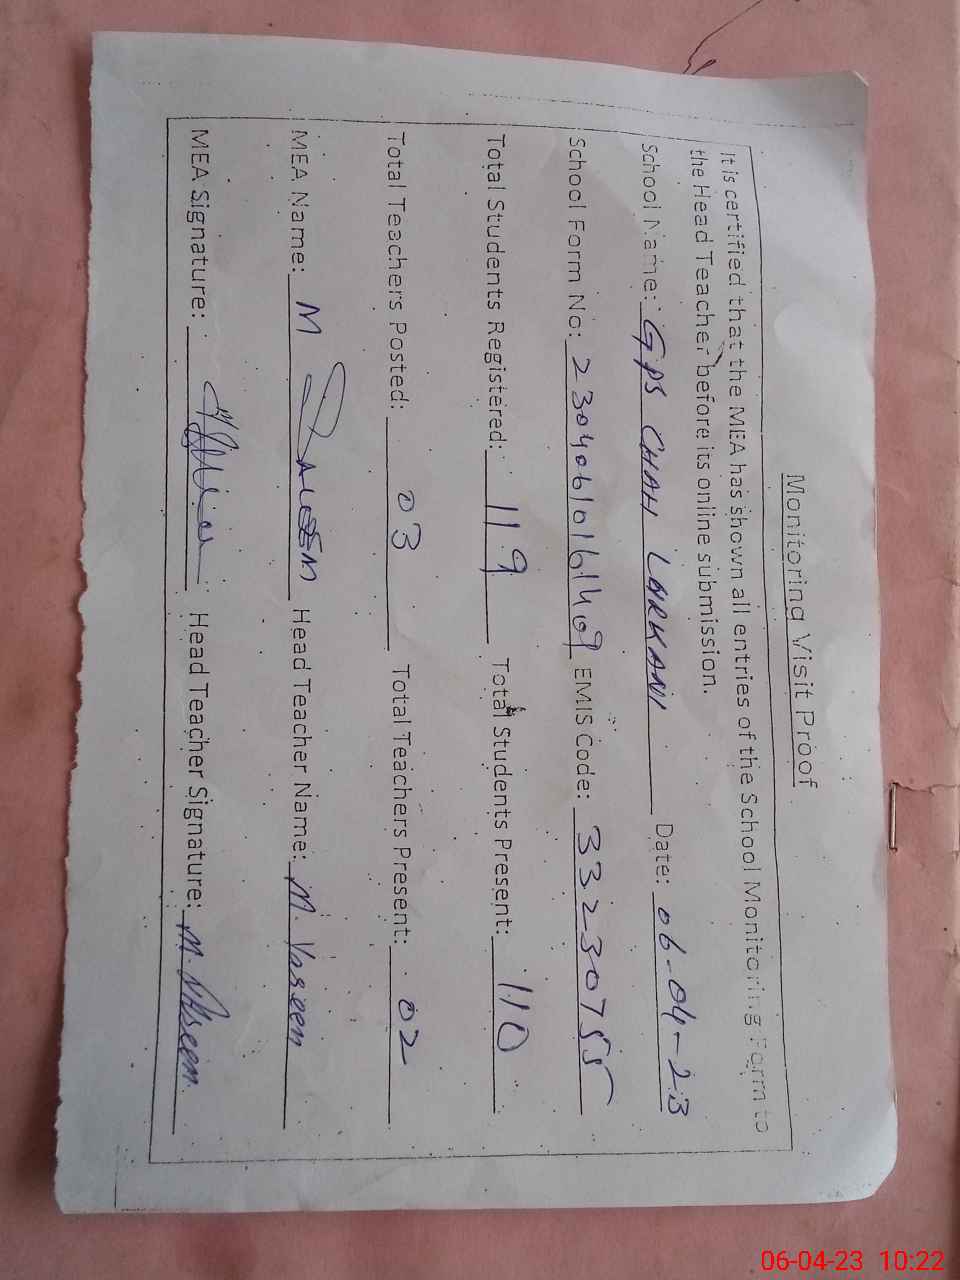 Monitoring Visit Proof
It is certified that the MEA has shown all entries of the School Monitoring Form to
the Head Teacher before its online submission.
School Name: GPS CHAH LARKANI Date: 06-04-23
School Form No: 23040610161409 EMIS Code: 33230755
Total Students Registered: 119 Total Students Present: 110
Total Teachers Posted: 03 Total Teachers Present: 02
MEA Name: M SALEEM Head Teacher Name: M.
MEA Signature: Head Teacher Signature: M.
06-04-23 10:22